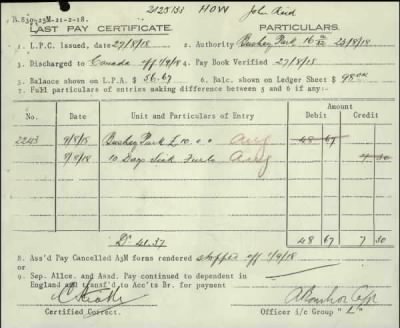 2125153 HOW John Reid
R.S39-25M-21-2-18.
LAST PAY CERTIFICATE. PARTICULARS.
1. L.P.C. Issued, date 27/8/18 2. Authority Bushey Park 16 23/8/18
3. Discharged to Canada off 1/9/18 4. Pay Book Verified 27/8/18
5. Balance shown on L.P.A. $ 56.67 6. Balc. shown on Ledger Sheet $ 98.04
7. Full particulars of entries making difference between 5 and 6 if any:-
No. Date Unit and Particulars of Entry Amount
Debit Credit
2243 9/8/18 Bushey Park £10.0.0 Aug 48 67
9/8/18 10 Days Sick Furlo Aug 7 30
Dr 41.37 48 67 7 30
8. Ass'd Pay Cancelled A3M forms rendered stopped off 1/9/18
or
9. Sep. Allce. and Assd. Pay continued to dependent in
England and transf'd to Acc'ts Br. for payment
Certified Correct. Officer i/c Group "L"